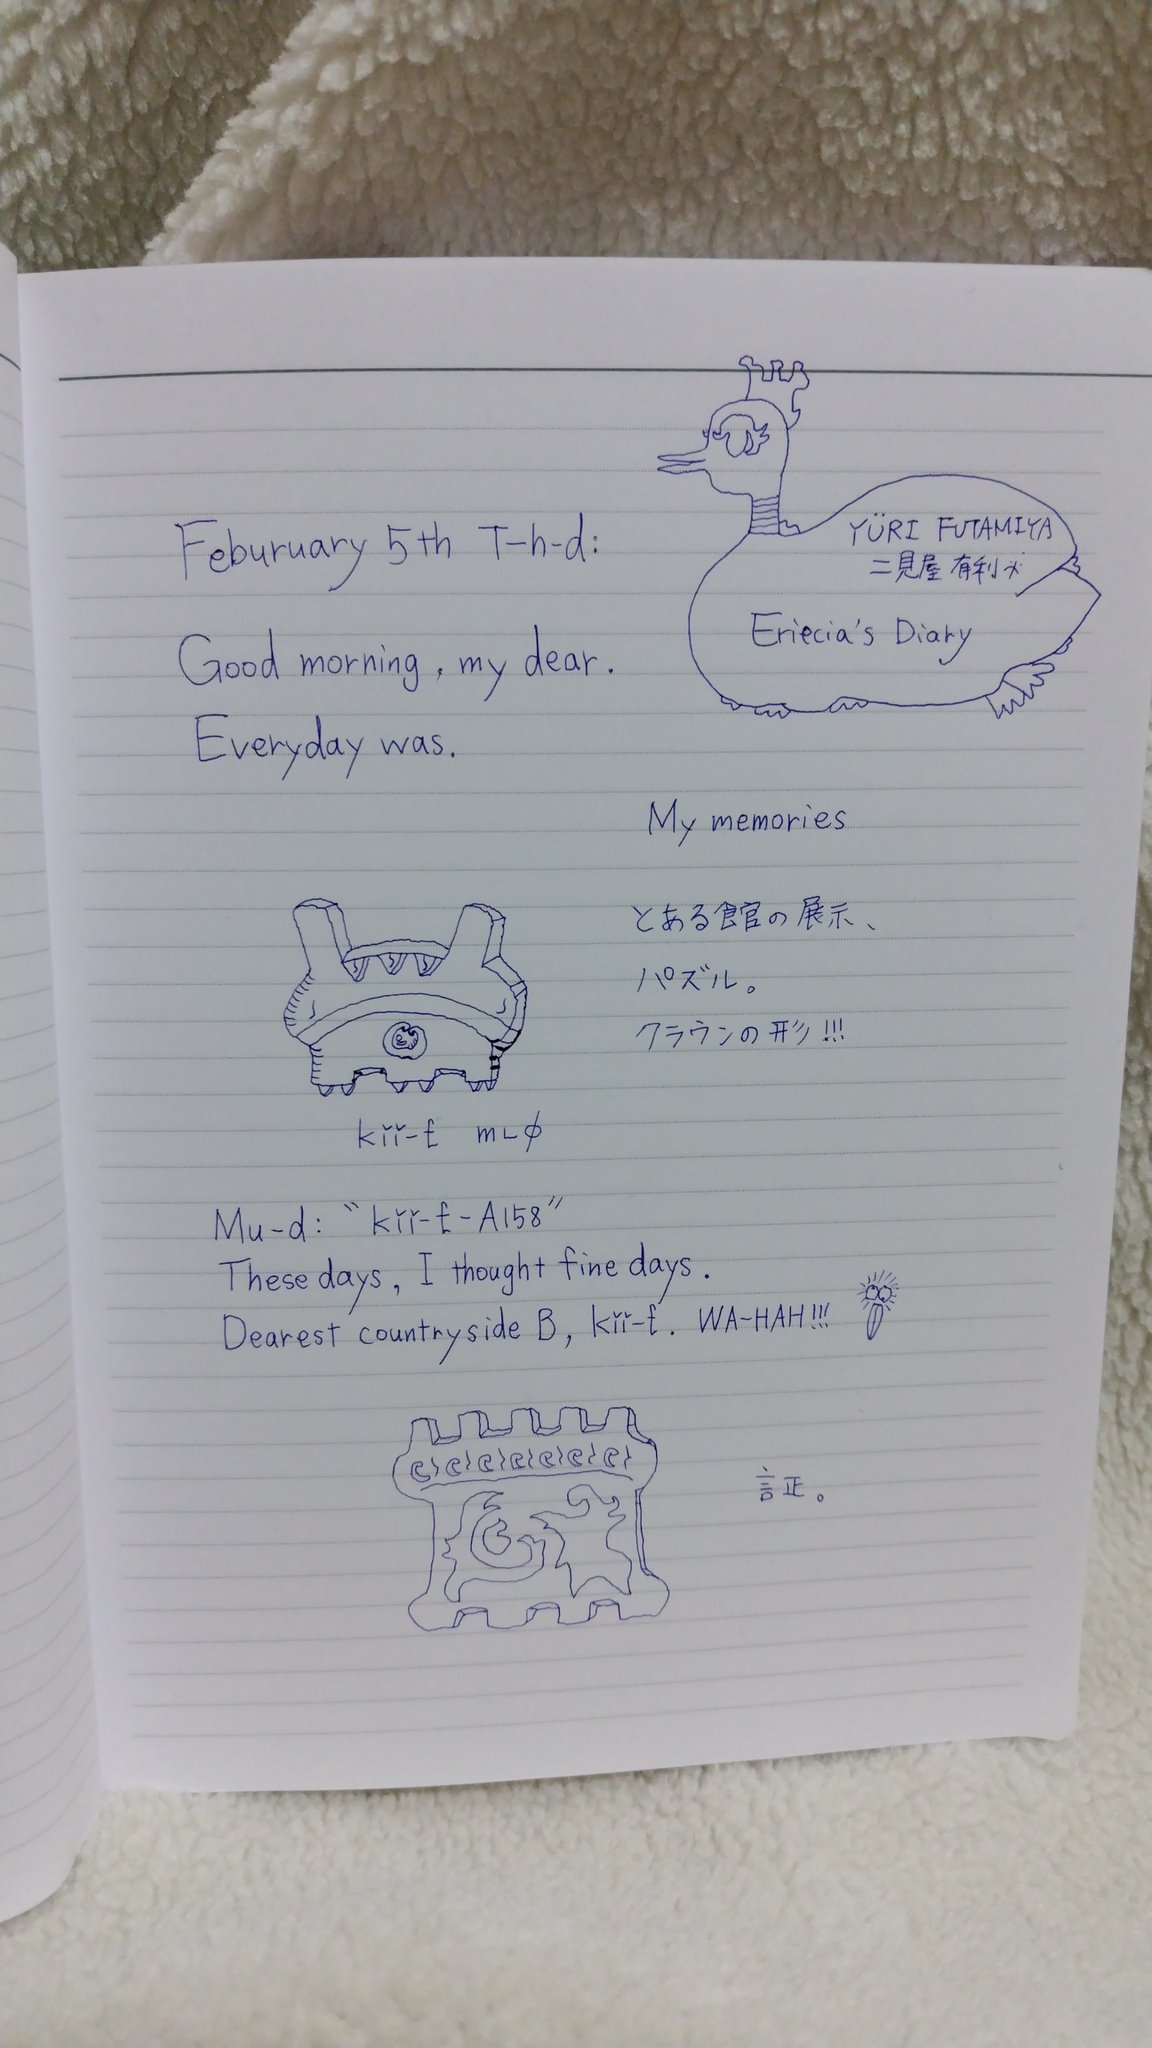 YÜRI FUTAMIYA
二見屋 有利
Eriecia's Diary
Feburuary 5th T-h-d:
Good morning, my dear.
Everyday was.
My memories
とある館の展示、
パズル。
クラウンの形!!!
Mu-d: "kїї-t-A158"
These days, I thought fine days.
Dearest countryside B, kїї-t. WA-HAH!!!
証。